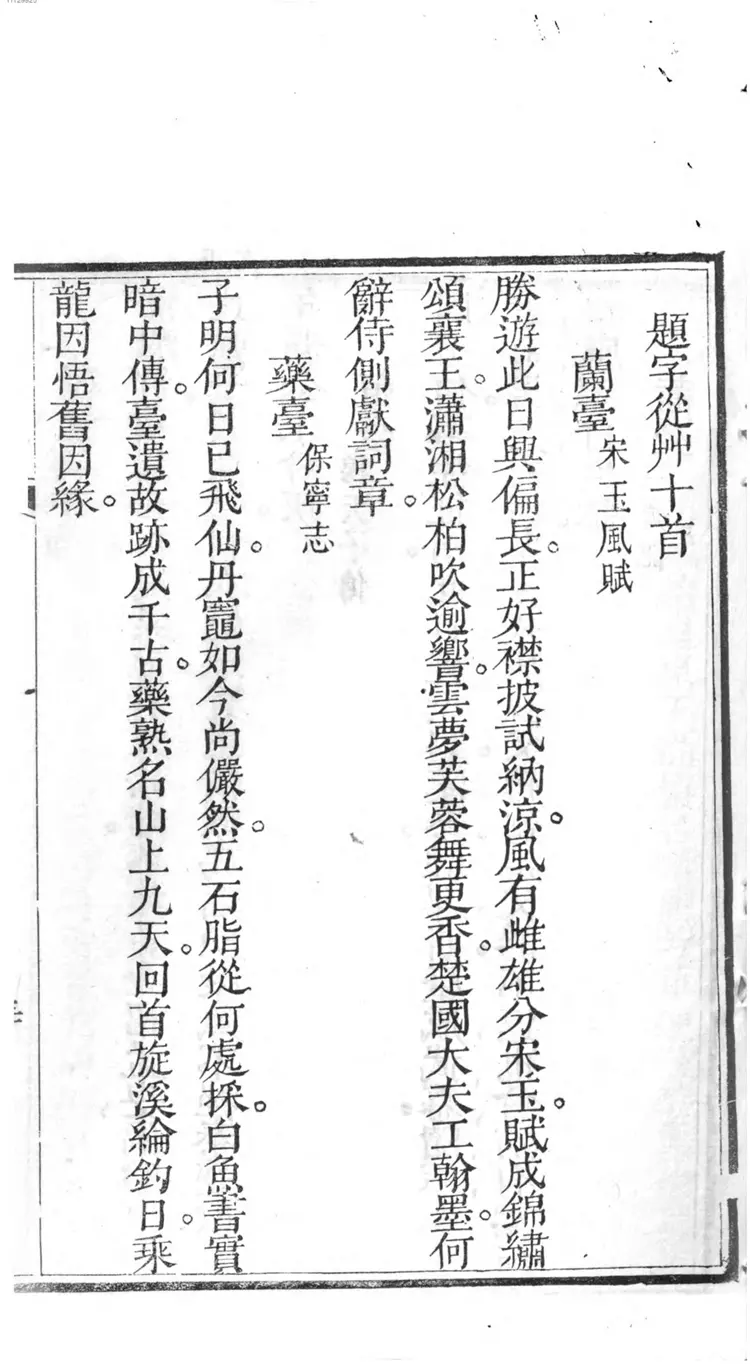 題字從艸十首
蘭臺宋玉風賦
勝遊此日興偏長。正好襟披試納涼。風有雌雄分宋玉。賦成錦繡
頌襄王。瀟湘松柏吹逾響。雲夢芙蓉舞更香。楚國大夫工翰墨。何
辭侍側獻詞章。
藥臺保寧志
子明何日已飛仙。丹竈如今尚儼然。五石脂從何處採。白魚書實
暗中傳。臺遺故跡成千古。藥熟名山上九天。回首旋溪綸釣日。乘
龍因悟舊因緣。